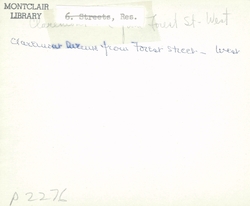 MONTCLAIR
LIBRARY
6. Streets, Res.
Forest St. West
Claremont Avenue from Forest Street - West
P 2276